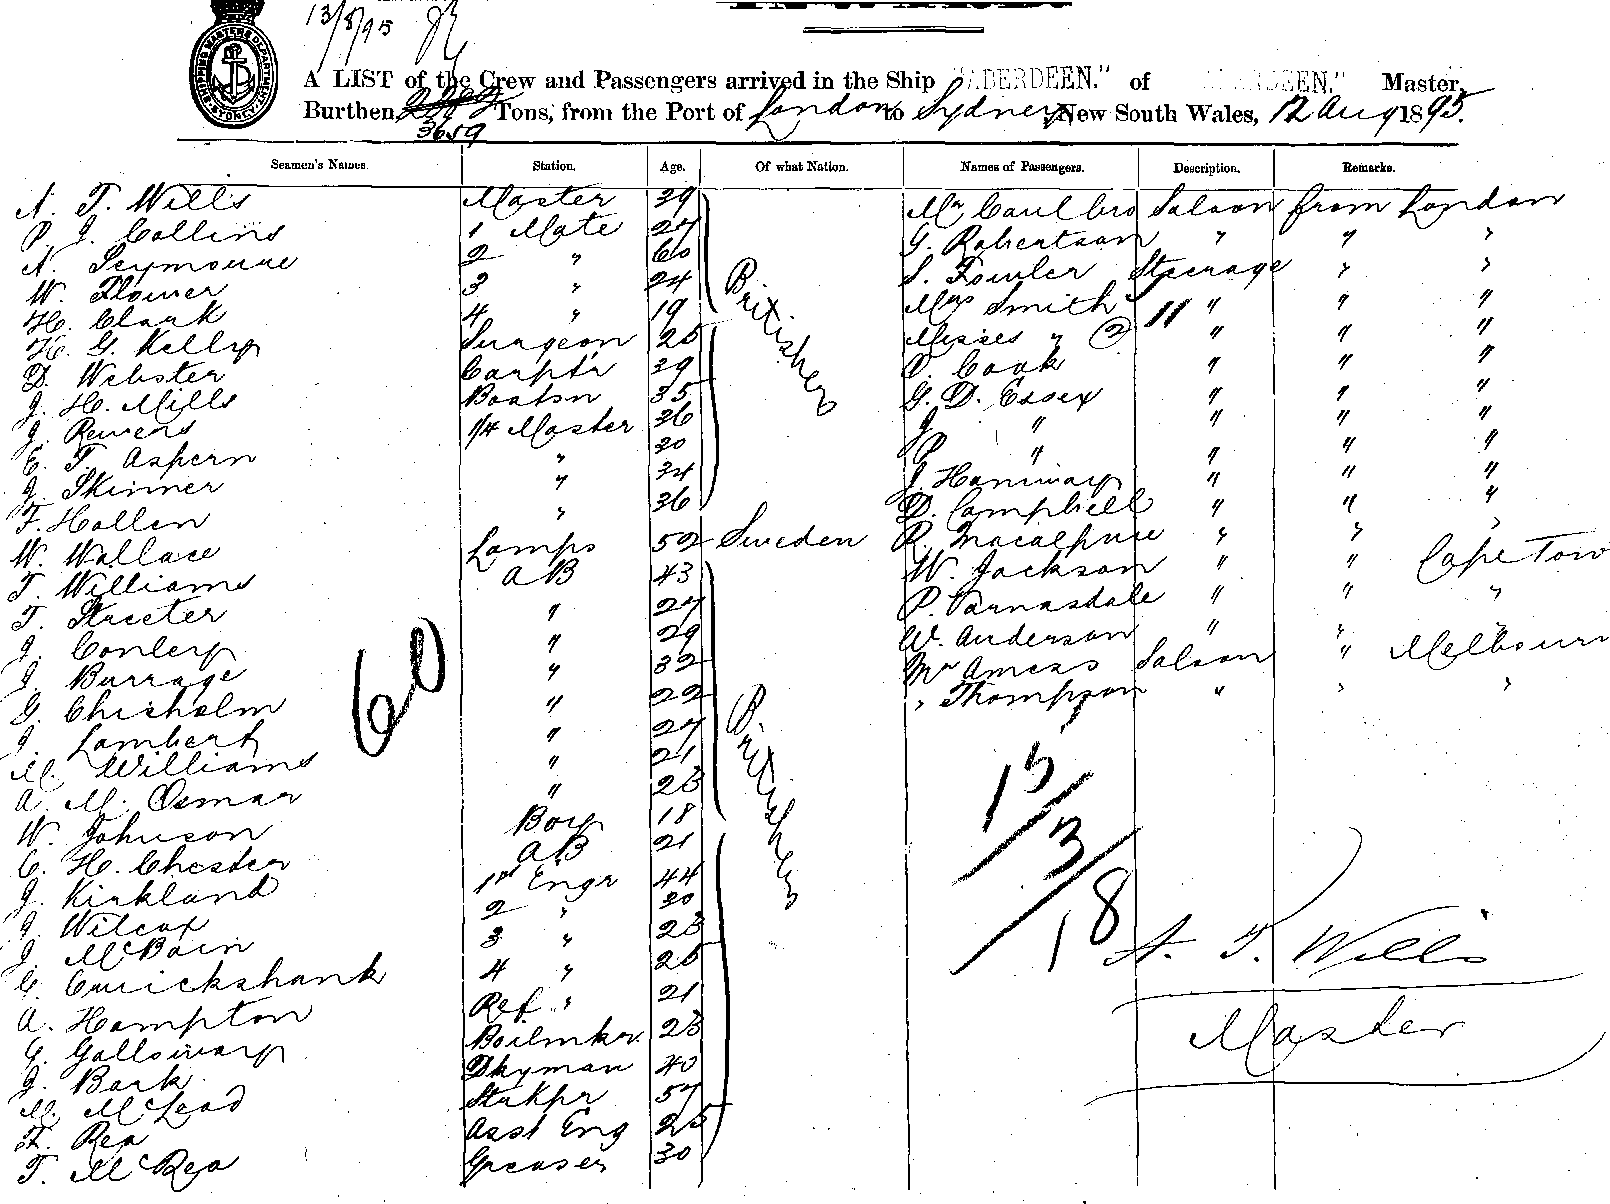 13/8/95
SHIPPING MASTERS DEPARTMENT SYDNEY
A LIST of the Crew and Passengers arrived in the Ship "ABERDEEN." of "ABERDEEN." Master,
Burthen 3659 Tons, from the Port of London to Sydney New South Wales, 12 Aug 1895.
Seamen's Names. Station. Age. Of what Nation. Names of Passengers. Description. Remarks.
A. T. Wills Master 39 Mr Caul Saloon from London
P. J. Collins 1 Mate 27 G. Robertson " " "
A. Seymour 2 " 60 S. Fowler Steerage " "
W. Flower 3 " 24 Mrs Smith " " "
H. Clark 4 " 19 Misses " 2 " " "
H. G. Kelly Surgeon 25 C. Cook " " "
D. Webster Carptr 39 G. D. Essex " " "
J. H. Mills Boatsn 35 J " " " "
J. Rewens 1/4 Master 36 P " " " "
E. T. Aspern " 30 J. Hannway " " "
J. Skinner " 34 D. Campbell " " "
F. Hallen " 36 R. Macalpine " " "
British
W. Wallace Lamps 52 Sweden W. Jackson " " Cape Tow
T. Williams AB 43 P. Barnasdale " " "
T. Streeter " 27 W. Anderson " "
J. Conley " 29 Mr Amess Saloon " Melbourn
J. Burrage " 32 " Thompson " " "
G. Chisholm " 22
J. Lambert " 27
M. Williams " 21
A. M. Osmar " 23
W. Johnson Boy 18
C. H. Chester AB 21
J. Kirkland 1st Engr 44
J. Wilcox 2 " 30
J. McBain 3 " 23
C. Cruickshank 4 " 25
A. Hampton Ref. " 21
G. Galloway Boilmkr. 23
J. Bark Dkyman 40
M. McLeod Stukpr 57
F. Rea Asst Eng 25
T. McRea Greaser 30
British
60
15/3/18
A. T. Wills
Master